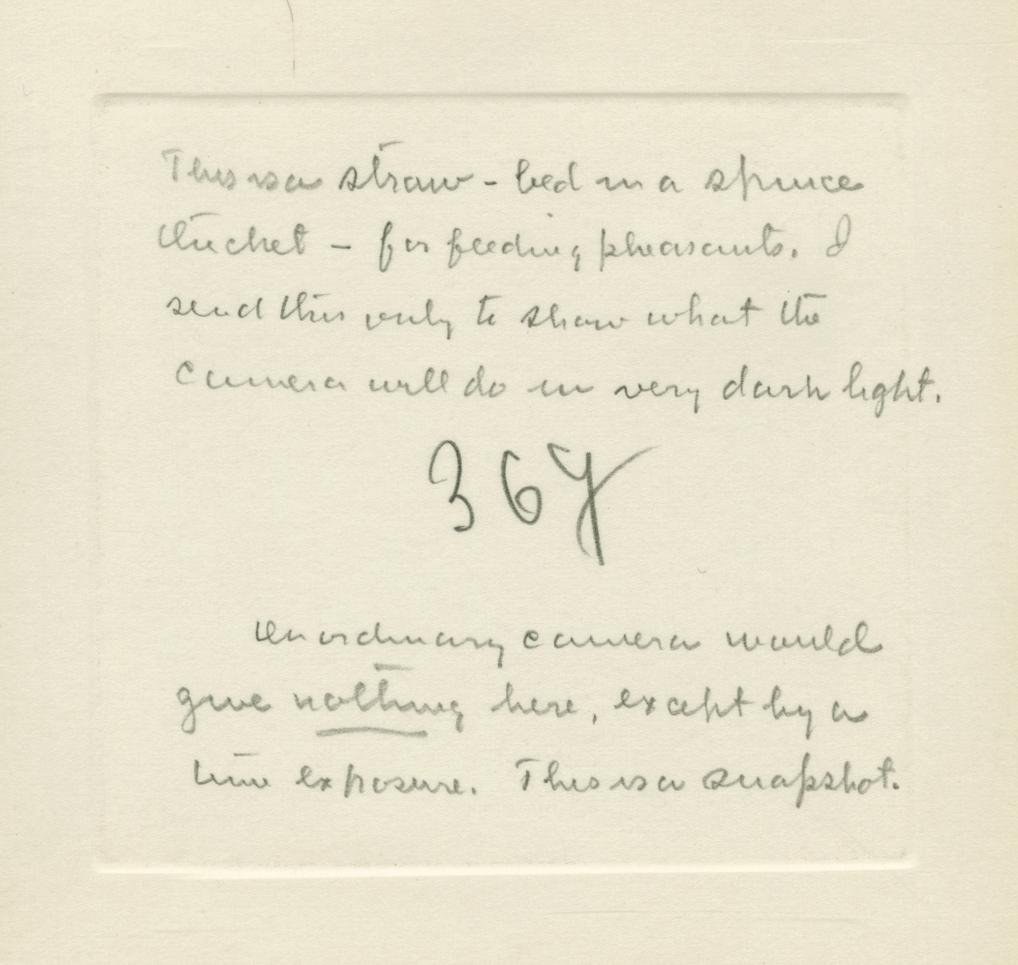 This is a straw-bed in a spruce
thicket - for feeding pheasants. I
send this only to show what the
camera will do in very dark light.
367
An ordinary camera would
give nothing here, except by a
time exposure. This is a snapshot.